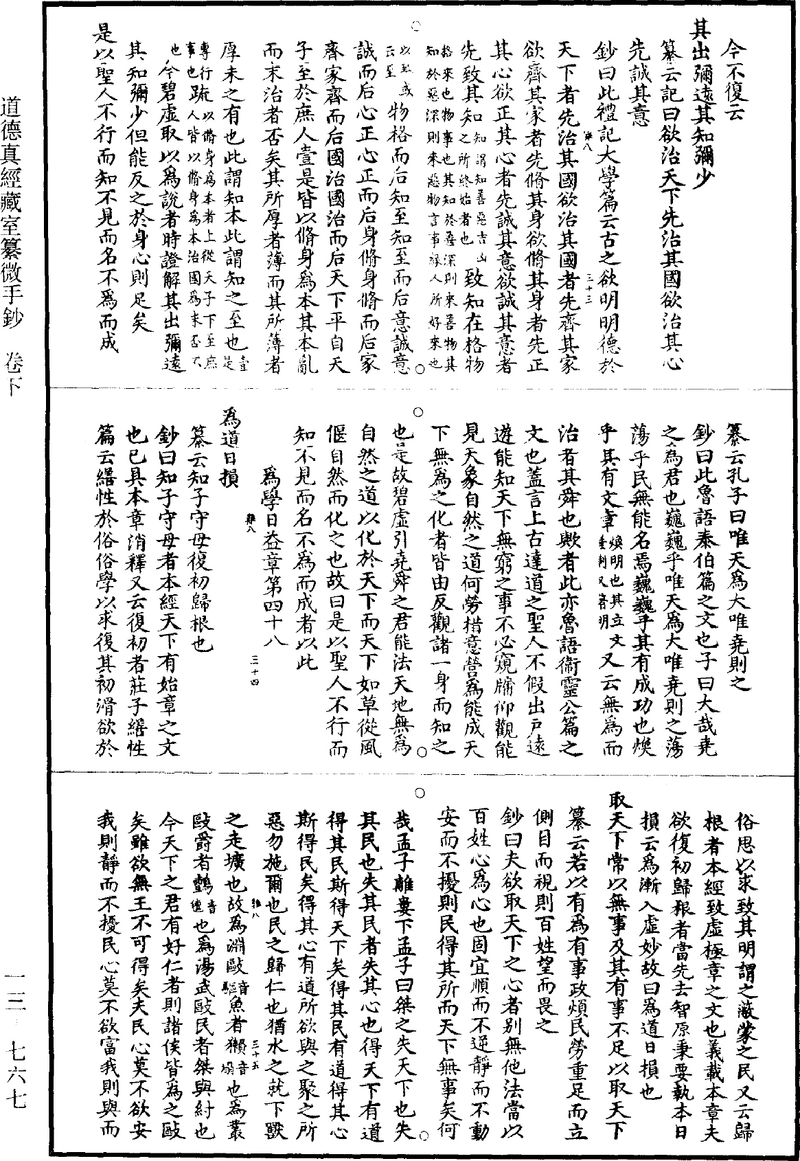 今不復云
其出彌遠其知彌少
纂云記曰欲治天下先治其國欲治其心
先誠其意
鈔曰此禮記大學篇云古之欲明明德於
天下者先治其國欲治其國者先齊其家
欲齊其家者先脩其身欲脩其身者先正
其心欲正其心者先誠其意欲誠其意者
先致其知知謂知善惡吉凶之所終始者也致知在格物
格來也物事也其知於善深則來善物其知於惡深則來惡物言事緣人所好來也
物格而后知至知至而后意誠意
誠而后心正心正而后身脩身脩而后家
齊家齊而后國治國治而后天下平自天
子至於庶人壹是皆以脩身爲本其本亂
而末治者否矣其所厚者薄而其所薄者
厚未之有也此謂知本此謂知之至也壹是
專行是也疏以脩身爲本者上從天子下至庶人皆以脩身爲本治國爲末否不
也今碧虛取以爲說者時證解其出彌遠
其知彌少但能反之於身心則足矣
是以聖人不行而知不見而名不爲而成
纂云孔子曰唯天爲大唯堯則之
鈔曰此魯語泰伯篇之文也子曰大哉堯
之爲君也巍巍乎唯天爲大唯堯則之蕩
蕩乎民無能名焉巍巍乎其有成功也煥
乎其有文章煥明也其立文垂制又著明又云無爲而
治者其舜也歟者此亦魯語衞靈公篇之
文也蓋言上古達道之聖人不假出戶遠
遊能知天下無窮之事不必窺牖仰觀能
見天象自然之道何勞措意營爲能成天
下無爲之化者皆由反觀諸一身而知之
也是故碧虛引堯舜之君能法天地無爲
自然之道以化於天下而天下如草從風
偃自然而化之也故曰是以聖人不行而
知不見而名不爲而成者以此
爲學日益章第四十八
爲道日損
纂云知子守母復初歸根也
鈔曰知子守母者本經天下有始章之文
也已具本章消釋又云復初者莊子繕性
篇云繕性於俗俗學以求復其初滑欲於
俗思以求致其明謂之蔽蒙之民又云歸
根者本經致虛極章之文也義載本章夫
欲復初歸根者當先去智原秉要執本日
損云爲漸入虛妙故曰爲道日損也
取天下常以無事及其有事不足以取天下
纂云若以有爲有事政煩民勞重足而立
側目而視則百姓望而畏之
鈔曰夫欲取天下之心者别無他法當以
百姓心爲心也固宜順而不逆靜而不動
安而不擾則民得其所而天下無事矣何
哉孟子離婁下孟子曰桀之失天下也失
其民也失其民者失其心也得天下有道
得其民斯得天下矣得其民有道得其心
斯得民矣得其心有道所欲與之聚之所
惡勿施爾也民之歸仁也猶水之就下獸
之走壙也故爲淵敺音驅魚者獺音㒓也爲叢
敺爵者鸇音氈也爲湯武敺民者桀與紂也
今天下之君有好仁者則諸侯皆爲之敺
矣雖欲無王不可得矣夫民心莫不欲安
我則靜而不擾民心莫不欲富我則與而
道德真經藏室纂微手鈔 卷下
一三 七六七